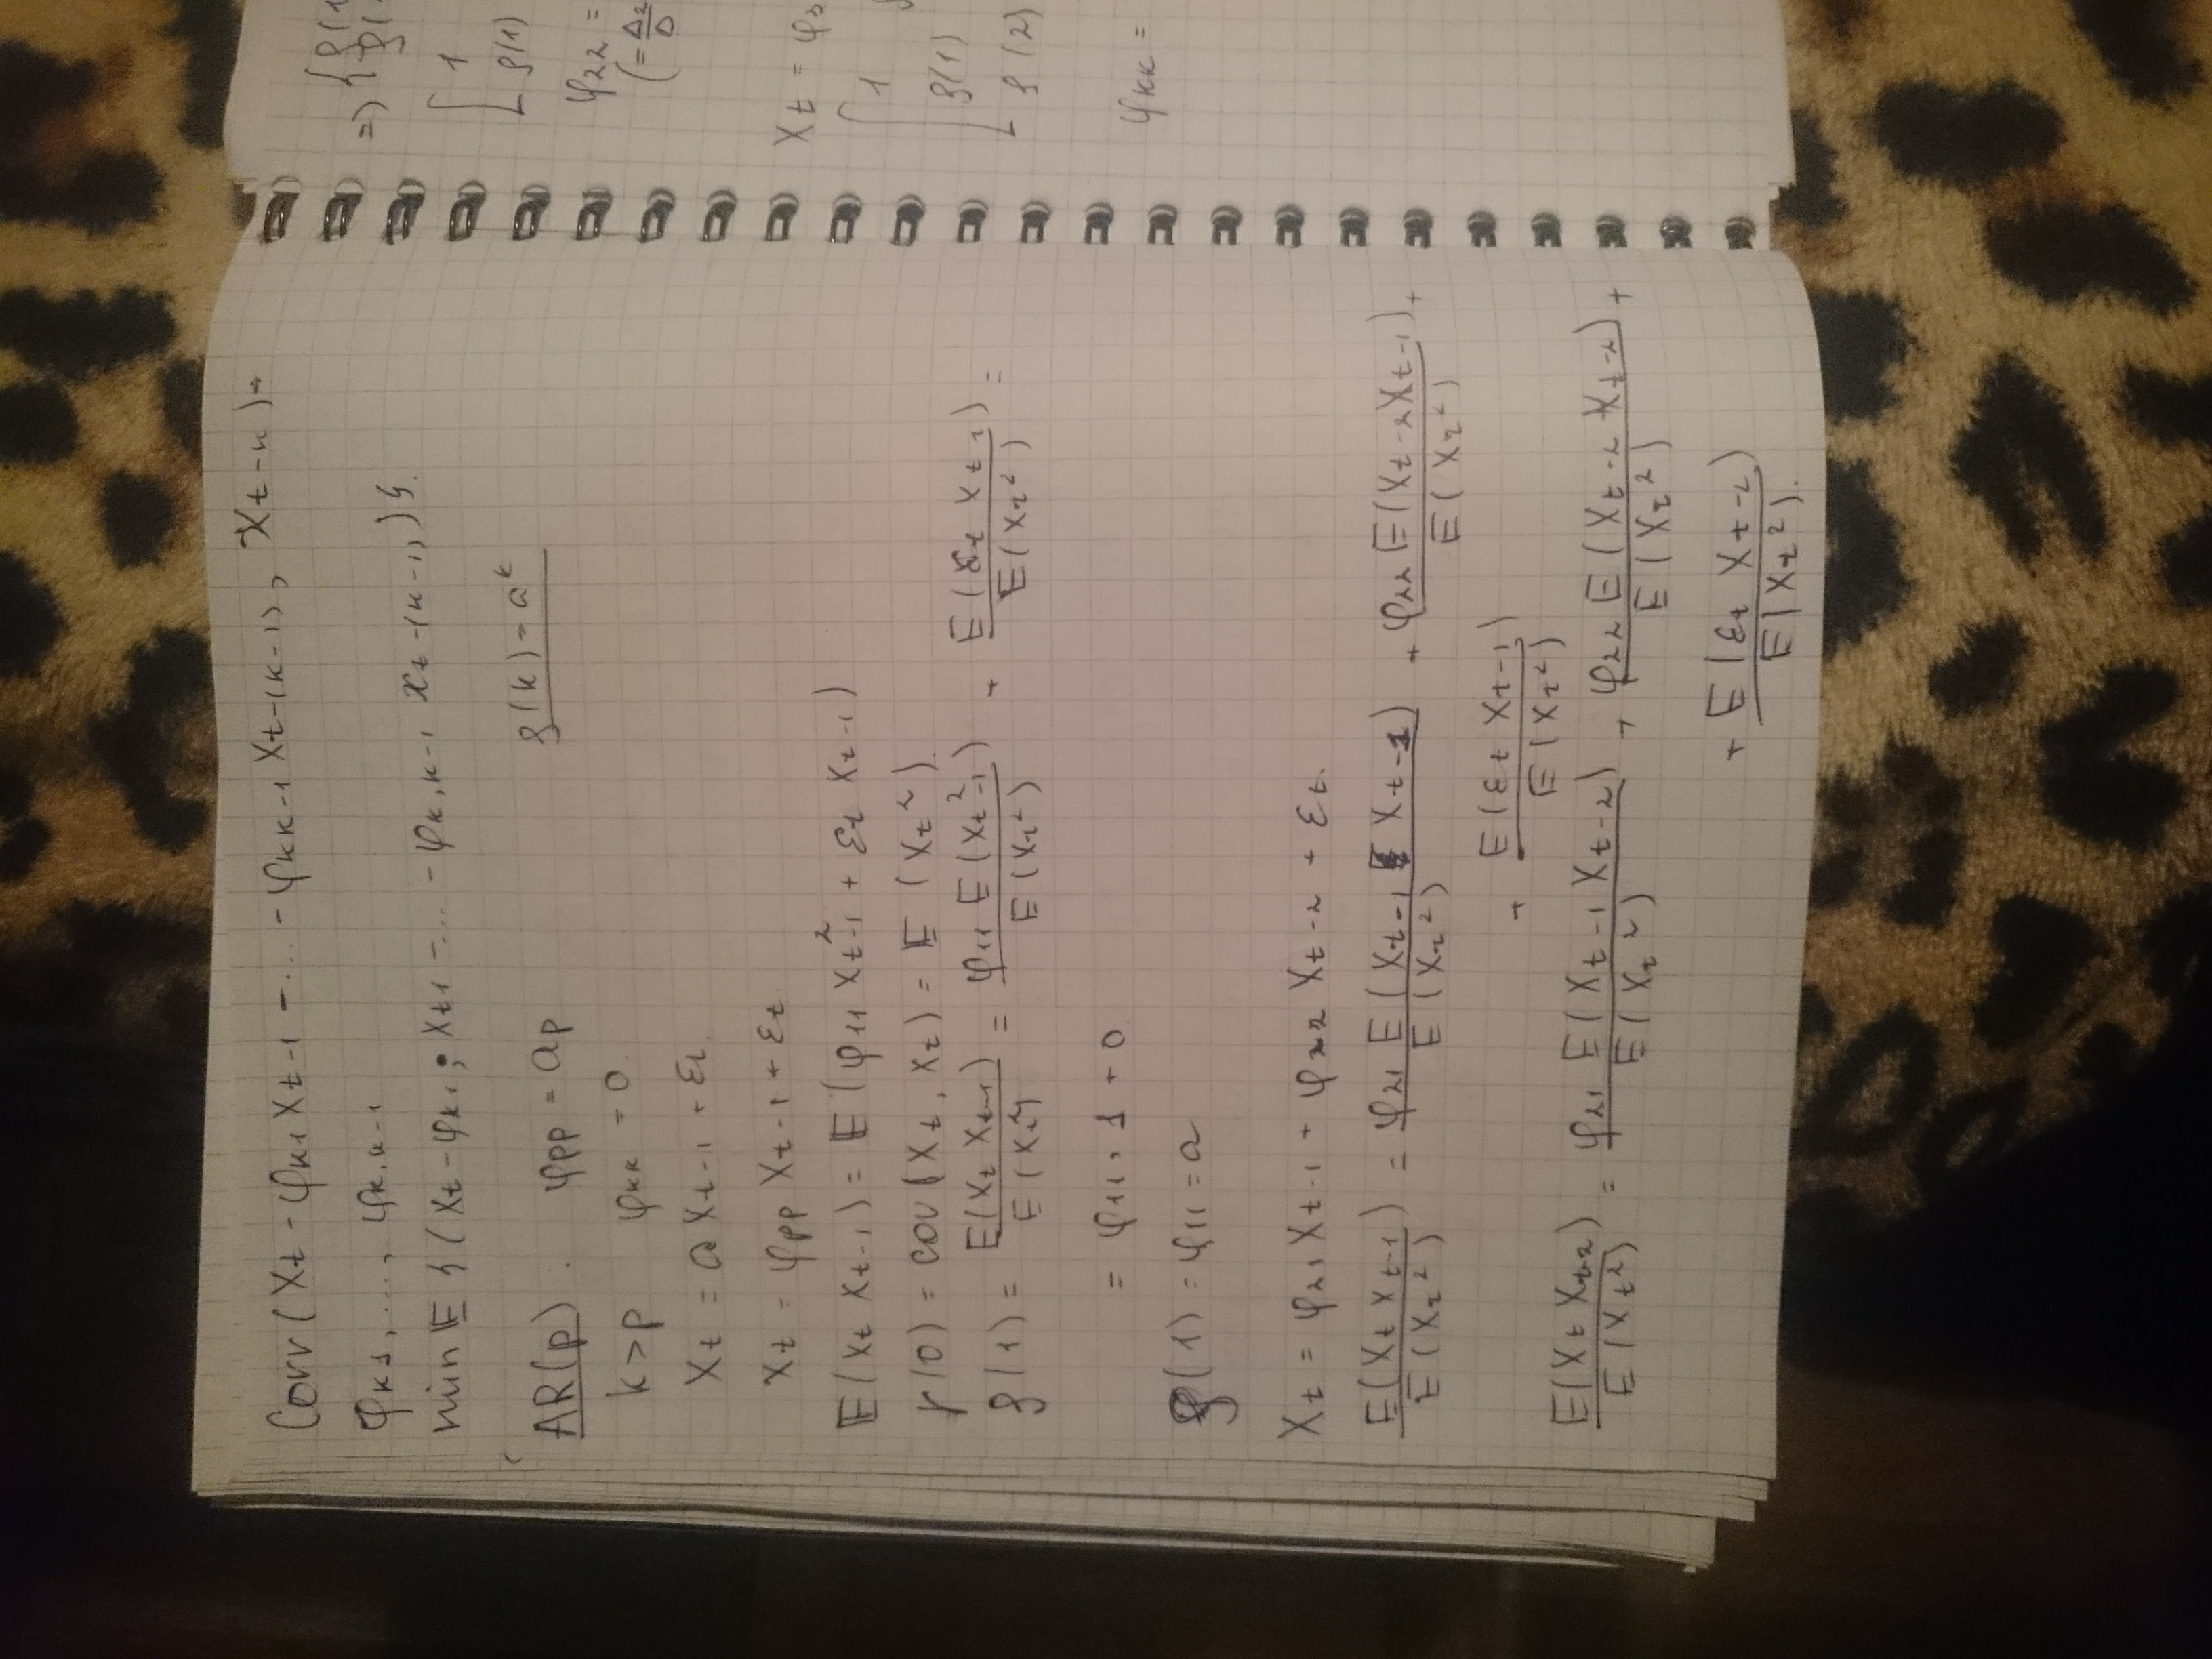 Corr(Xt - φk1 Xt-1 - ... - φkk-1 Xt-(k-1), Xt-k) →
φk1, ..., φk,k-1
min E {(Xt - φk1; Xt1 - ... - φk,k-1 Xt-(k-1))}.
ρ(k) - a^k
AR(p). φpp = ap
k > p φkk = 0.
Xt = a Xt-1 + εt.
Xt = φpp Xt-1 + εt.
E(Xt Xt-1) = E(φ11 Xt-1² + εt Xt-1)
γ(0) = cov(Xt, Xt) = E(Xt²).
ρ(1) = E(Xt Xt-1) / E(Xt²) = φ11 E(Xt-1²) / E(Xt²) + E(εt Xt-1) / E(Xt²) =
= φ11, 1 + 0.
ρ(1) = φ11 = a
Xt = φ21 Xt-1 + φ22 Xt-2 + εt.
E(Xt Xt-1) / E(Xt²) = φ21 E(Xt-1 Xt-1) / E(Xt²) + φ22 E(Xt-2 Xt-1) / E(Xt²) +
+ E(εt Xt-1) / E(Xt²)
E(Xt Xt-2) / E(Xt²) = φ21 E(Xt-1 Xt-2) / E(Xt²) + φ22 E(Xt-2 Xt-2) / E(Xt²) +
+ E(εt Xt-2) / E(Xt²).
=> { ρ(1
ρ(
[ 1
ρ(1)
φ22 =
(= Δ2/Δ
Xt = φ3
[ 1
ρ(1)
ρ(2)
φkk =